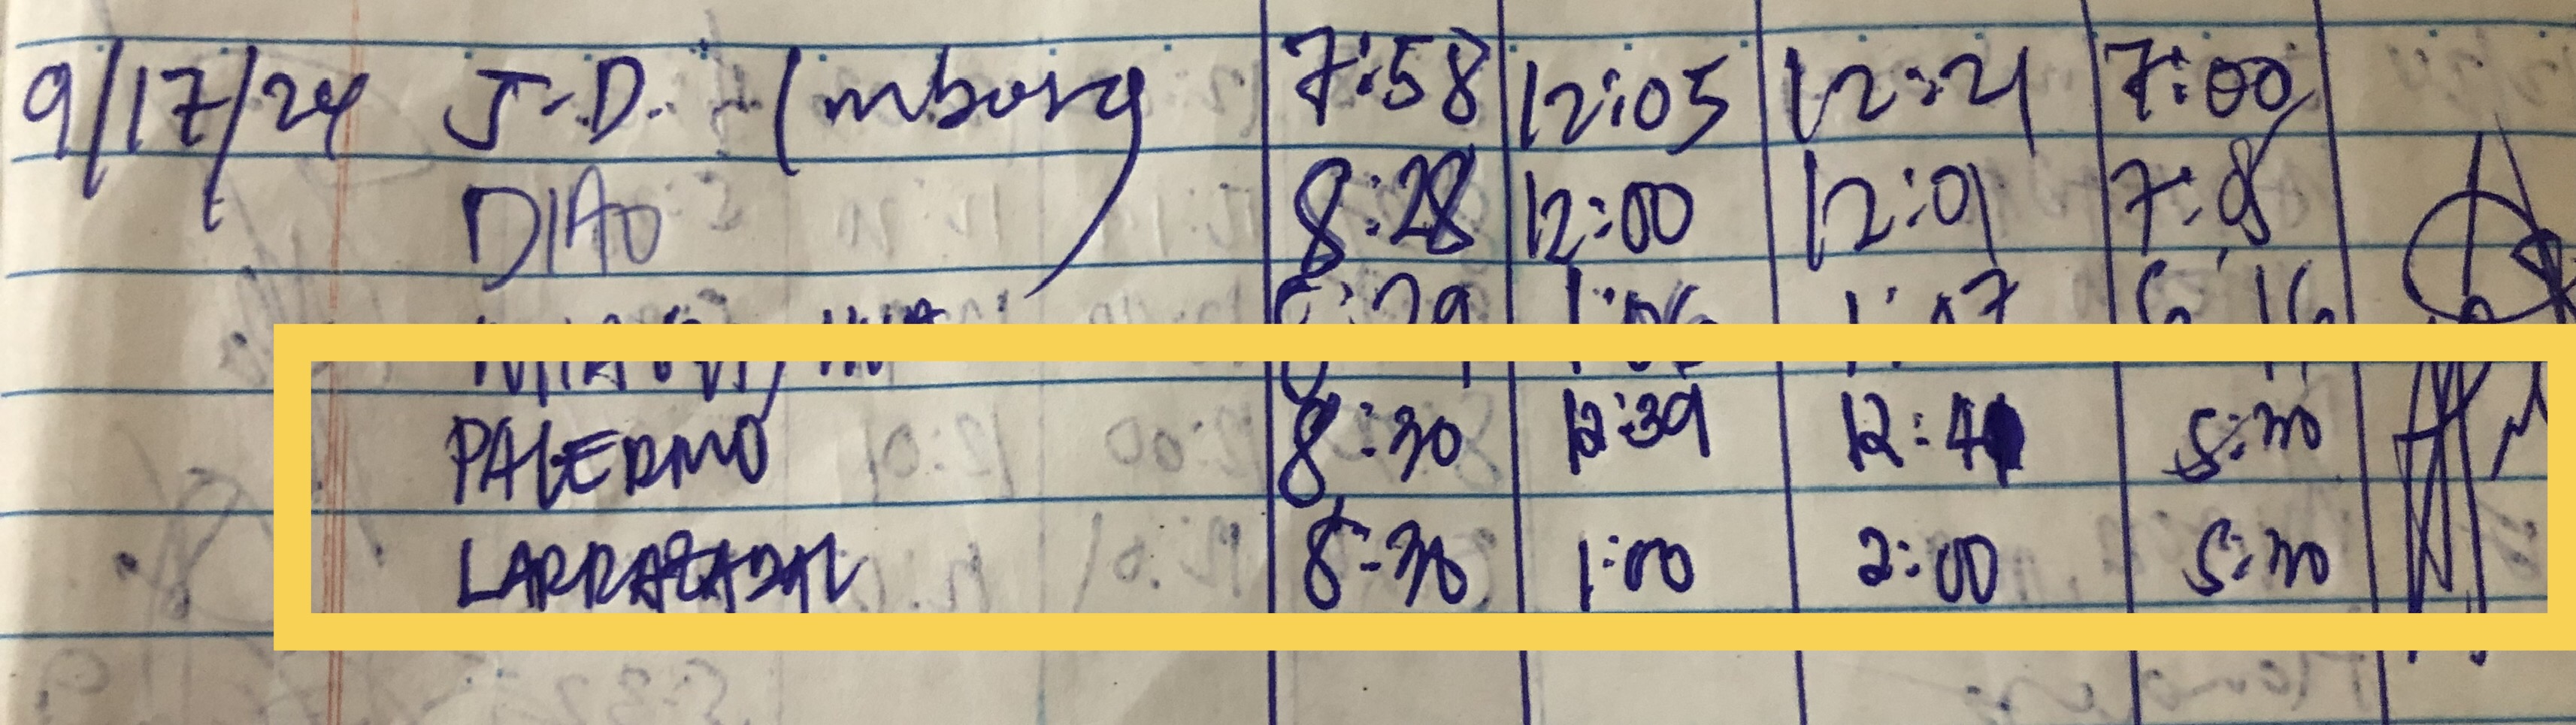 9/17/24 J.D. Imborg 7:58 12:05 12:21 7:00
DIAO 8:28 12:00 12:01 7:8
8:29 1:06 1:07 6:16
PALERMO 8:30 12:39 12:41 5:30
LARRAZABAL 8:30 1:00 2:00 5:30